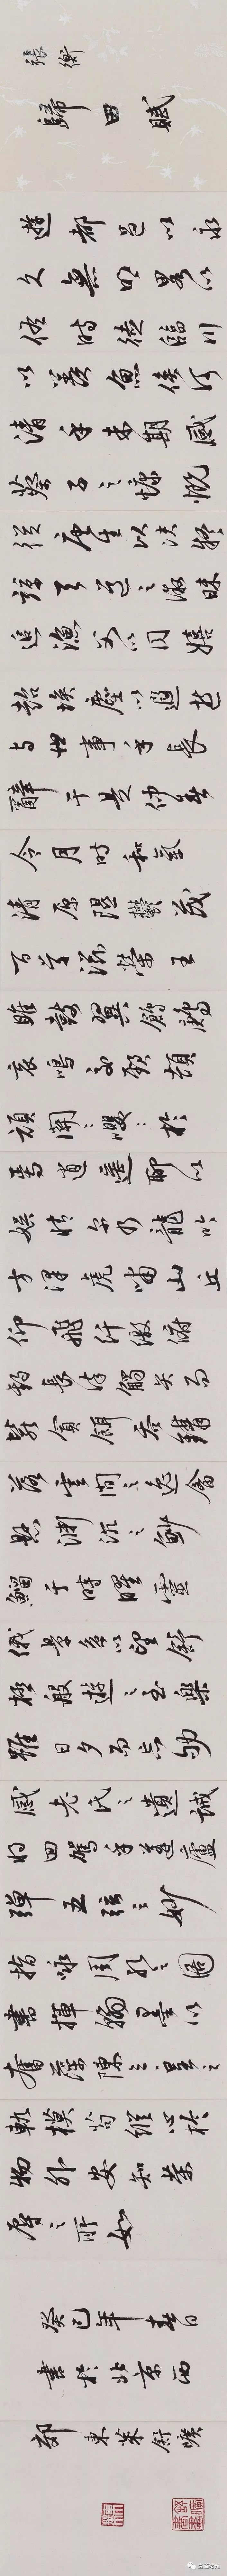 張衡
歸田賦
遊都邑以永
久無明略以
佐時徒臨川
以羨魚俟河
清乎未期感
蔡子之慷慨
從唐生以決疑
諒天道之微昧
追漁父以同嬉
超埃塵以遐逝
與世事乎長
辭于是仲春
令月時和氣
清原隰鬱茂
百草滋榮王
雎鼓翼鶬鶊
哀鳴交頸頡
頏關〻嚶〻於
焉逍遙聊以
娛情爾乃龍吟
方澤虎嘯山丘
仰飛纖繳俯
釣長流觸矢而
斃貪餌吞鉤
落雲間之逸禽
懸淵沉之魦
鰡于時曜靈
俄景係以望舒
極般遊之至樂
雖日夕而忘劬
感老氏之遺誡
將回駕乎蓬廬
彈五弦之妙
指詠周孔之圖
書揮翰墨以
奮藻陳三皇之
軌模苟縱心於
物外安知榮
辱之所如
癸巳年春日
書於北京西
郊東萊舒